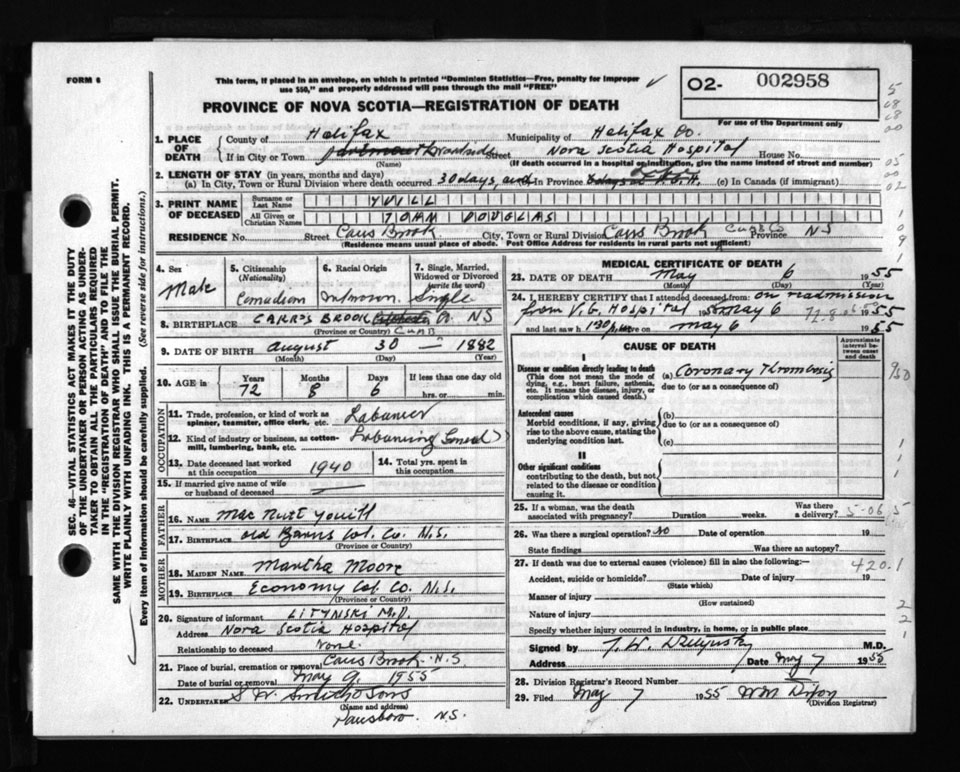 FORM 6
This form, if placed in an envelope, on which is printed "Dominion Statistics—Free, penalty for improper
use $50," and properly addressed will pass through the mail "FREE"
PROVINCE OF NOVA SCOTIA—REGISTRATION OF DEATH
O2- 002958
For use of the Department only
1. PLACE OF DEATH
County of Halifax Municipality of Halifax Co.
If in City or Town Street Nova Scotia Hospital House No.
(Name) (If death occurred in a hospital or institution, give the name instead of street and number)
2. LENGTH OF STAY (in years, months and days)
(a) In City, Town or Rural Division where death occurred 30 days, and In Province (c) In Canada (if immigrant)
3. PRINT NAME OF DECEASED
Surname or Last Name YUILL
All Given or Christian Names JOHN DOUGLAS
RESIDENCE No. Street Carrs Brook City, Town or Rural Division Carrs Brook Province NS
(Residence means usual place of abode. Post Office Address for residents in rural parts not sufficient)
4. Sex
Male
5. Citizenship
(Nationality)
Canadian
6. Racial Origin
Unknown
7. Single, Married,
Widowed or Divorced
(write the word)
Single
8. BIRTHPLACE CARR'S BROOK NS
(Province or Country)
9. DATE OF BIRTH August 30 1882
(Month) (Day) (Year)
10. AGE in
Years Months Days If less than one day
72 8 6 hrs. or min.
OCCUPATION
11. Trade, profession, or kind of work as
spinner, teamster, office clerk, etc. Labourer
12. Kind of industry or business, as cotton-
mill, lumbering, bank, etc. Labouring
13. Date deceased last worked
at this occupation 1940
14. Total yrs. spent in
this occupation
15. If married give name of wife
or husband of deceased
FATHER
16. NAME Mac Nutt Youill
17. BIRTHPLACE Old Barns Col. Co. N.S.
(Province or Country)
MOTHER
18. MAIDEN NAME Martha Moore
19. BIRTHPLACE Economy Col. Co. N.S.
(Province or Country)
20. Signature of informant LITYNSKI M.D.
Address Nova Scotia Hospital
Relationship to deceased None.
21. Place of burial, cremation or removal Carrs Brook N.S.
Date of burial or removal May 9, 1955
22. UNDERTAKER S W Smith & Sons
(Name and address)
Parrsboro N.S.
MEDICAL CERTIFICATE OF DEATH
23. DATE OF DEATH May 6 1955
(Month) (Day) (Year)
24. I HEREBY CERTIFY that I attended deceased from: on readmission
from V.G. Hospital May 6 1955
and last saw h 1:30 p.m. on May 6 1955
CAUSE OF DEATH
Approximate
interval be-
tween onset
and death
I
Disease or condition directly leading to death
(This does not mean the mode of
dying, e.g., heart failure, asthenia,
etc. It means the disease, injury, or
complication which caused death.)
(a) Coronary Thrombosis
due to (or as a consequence of)
Antecedent causes
Morbid conditions, if any, giving
rise to the above cause, stating the
underlying condition last.
(b)
due to (or as a consequence of)
(c)
II
Other significant conditions
contributing to the death, but not
related to the disease or condition
causing it.
25. If a woman, was the death
associated with pregnancy? Duration weeks. Was there
a delivery?
26. Was there a surgical operation? No Date of operation 19
State findings Was there an autopsy?
27. If death was due to external causes (violence) fill in also the following:—
420.1
Accident, suicide or homicide? Date of injury 19
(State which)
Manner of injury
(How sustained)
Nature of injury
Specify whether injury occurred in industry, in home, or in public place
Signed by M.D.
Address Date May 7 1955
28. Division Registrar's Record Number
29. Filed May 7 1955 WM Dixon
(Division Registrar)
SEC. 46—VITAL STATISTICS ACT MAKES IT THE DUTY
OF THE UNDERTAKER OR PERSON ACTING AS UNDER-
TAKER TO OBTAIN ALL THE PARTICULARS REQUIRED
IN THE "REGISTRATION OF DEATH" AND TO FILE THE
SAME WITH THE DIVISION REGISTRAR WHO SHALL ISSUE THE BURIAL PERMIT.
WRITE PLAINLY WITH UNFADING INK. THIS IS A PERMANENT RECORD.
Every item of information should be carefully supplied. (See reverse side for instructions.)